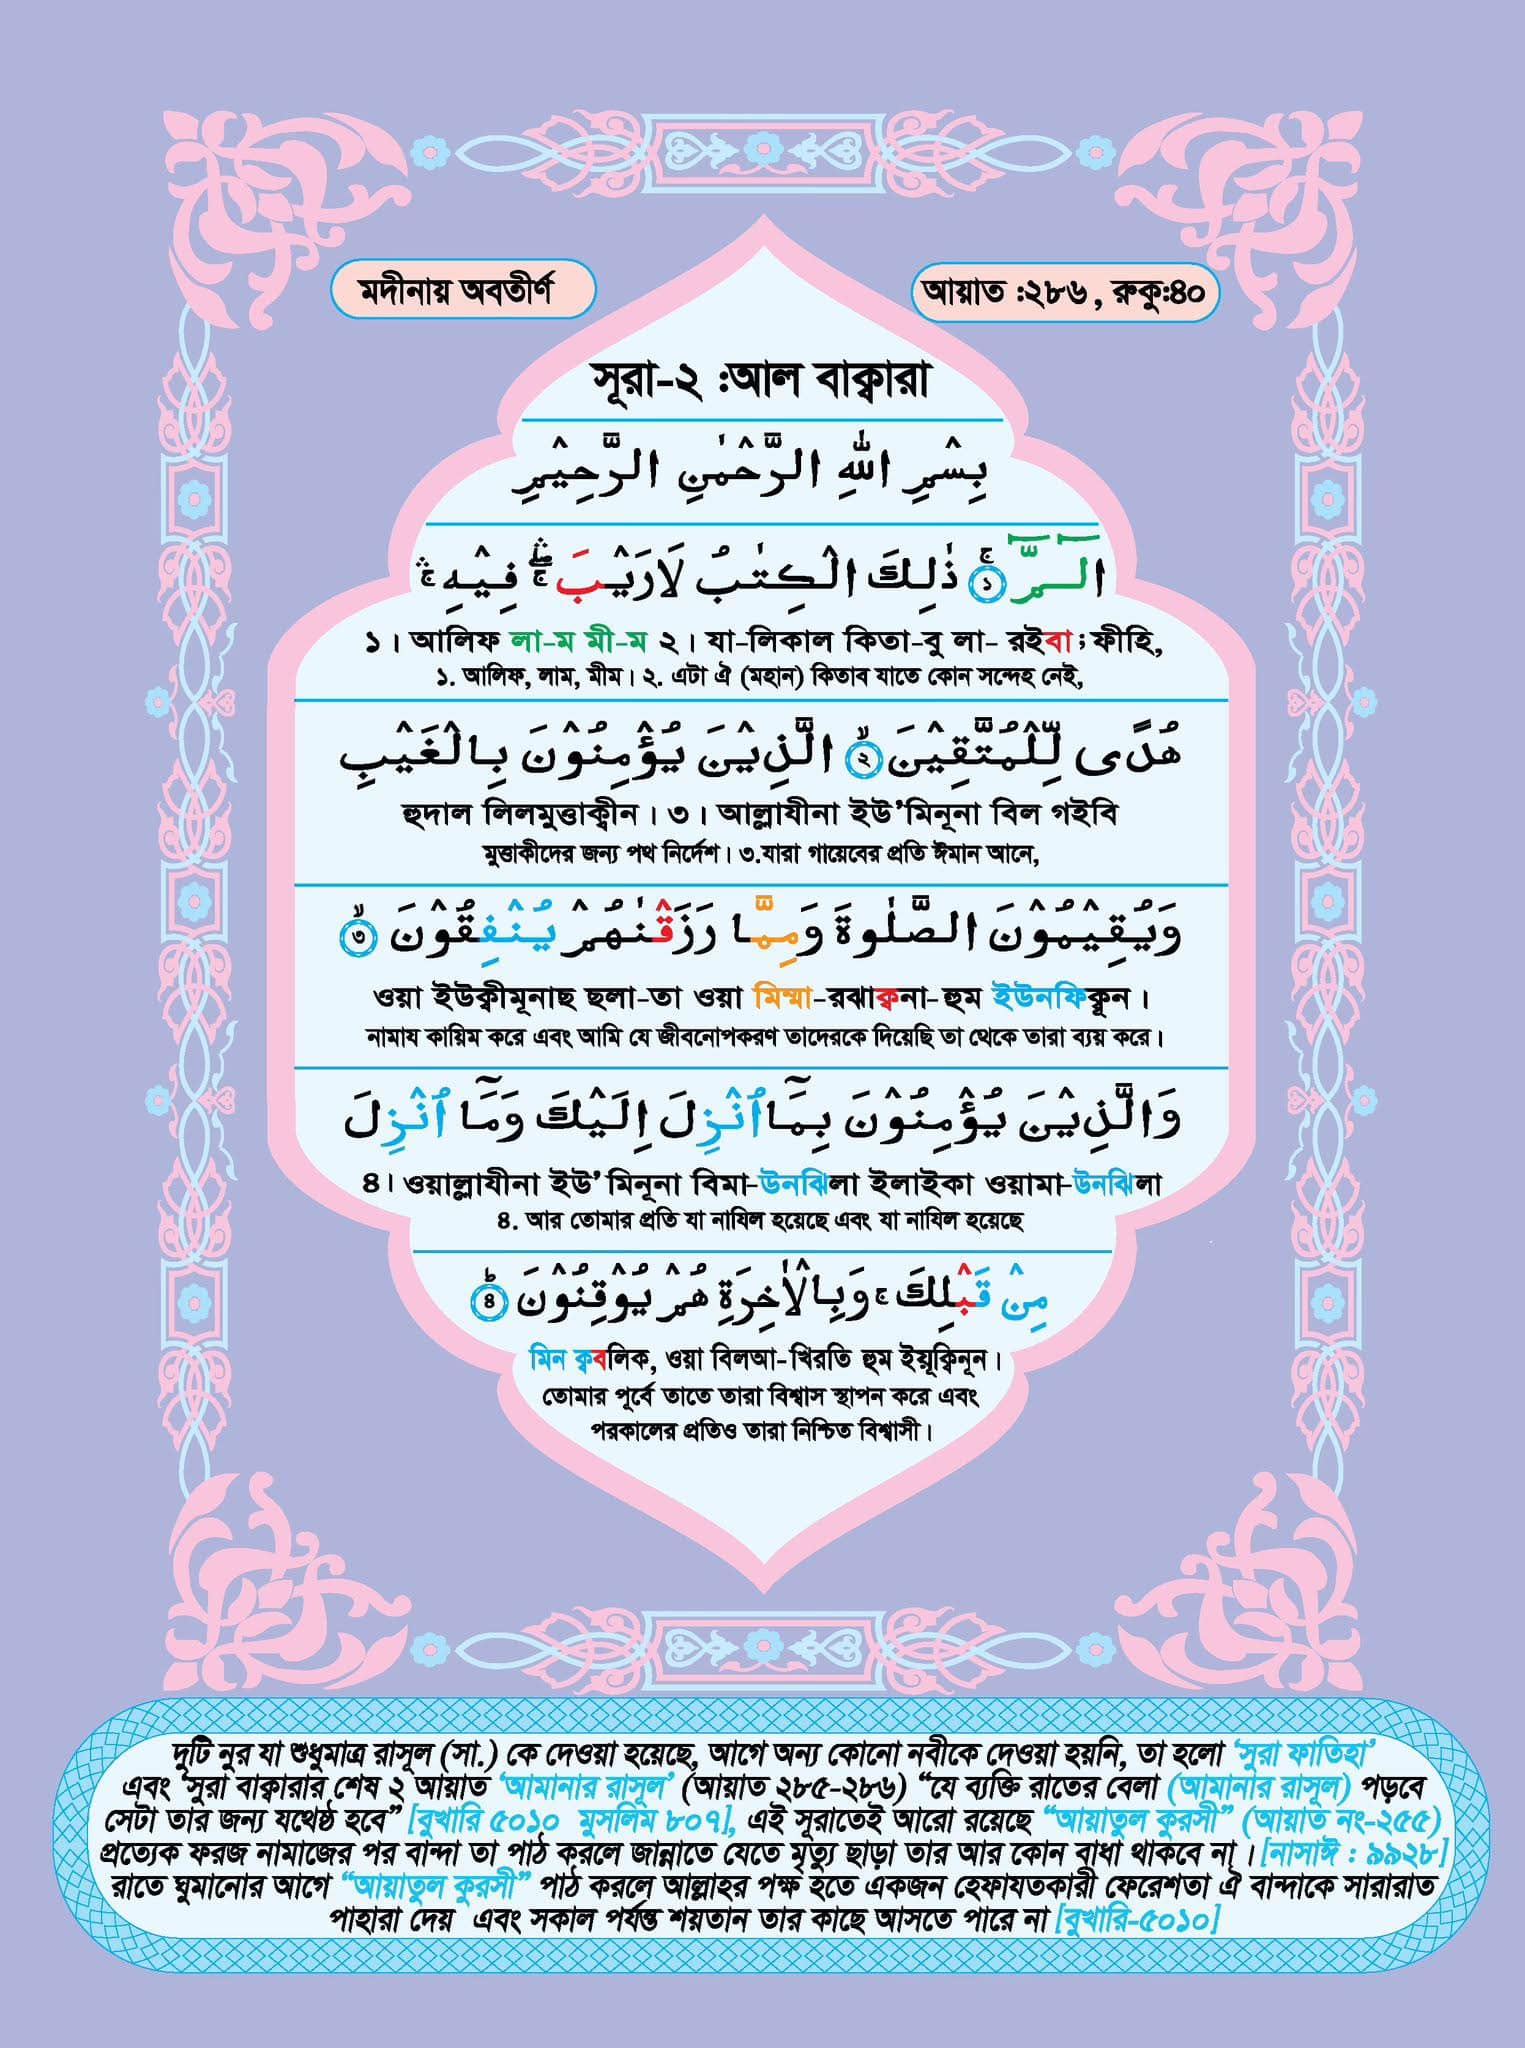 মদীনায় অবতীর্ণ
আয়াত :২৮৬, রুকু:৪০
সূরা-২ :আল বাক্বারা
بِسْمِ اللّٰهِ الرَّحْمٰنِ الرَّحِيْمِ
الٓمّٓ ۚ﴿١﴾ ذٰلِكَ الْكِتٰبُ لَارَيْبَ ۛۖۚ فِيْهِ ۛۚ
১। আলিফ লা-ম মী-ম ২। যা-লিকাল কিতা-বু লা- রইবা; ফীহি,
১. আলিফ, লাম, মীম। ২. এটা ঐ (মহান) কিতাব যাতে কোন সন্দেহ নেই,
هُدًى لِّلْمُتَّقِيْنَ ۙ﴿٢﴾ الَّذِيْنَ يُؤْمِنُوْنَ بِالْغَيْبِ
হুদাল লিলমুত্তাক্বীন। ৩। আল্লাযীনা ইউ’মিনূনা বিল গইবি
মুত্তাকীদের জন্য পথ নির্দেশ। ৩.যারা গায়েবের প্রতি ঈমান আনে,
وَيُقِيْمُوْنَ الصَّلٰوةَ وَمِمَّا رَزَقْنٰهُمْ يُنْفِقُوْنَ ۙ﴿٣﴾
ওয়া ইউক্বীমূনাছ ছলা-তা ওয়া মিম্মা-রঝাক্বনা-হুম ইউনফিক্বূন।
নামায কায়িম করে এবং আমি যে জীবনোপকরণ তাদেরকে দিয়েছি তা থেকে তারা ব্যয় করে।
وَالَّذِيْنَ يُؤْمِنُوْنَ بِمَآ اُنْزِلَ اِلَيْكَ وَمَآ اُنْزِلَ
৪। ওয়াল্লাযীনা ইউ’মিনূনা বিমা-উনঝিলা ইলাইকা ওয়ামা-উনঝিলা
৪. আর তোমার প্রতি যা নাযিল হয়েছে এবং যা নাযিল হয়েছে
مِنْ قَبْلِكَ ۚ وَبِالْاٰخِرَةِ هُمْ يُوْقِنُوْنَ ؕ﴿٤﴾
মিন ক্ববলিক, ওয়া বিলআ-খিরতি হুম ইয়ূক্বিনূন।
তোমার পূর্বে তাতে তারা বিশ্বাস স্থাপন করে এবং
পরকালের প্রতিও তারা নিশ্চিত বিশ্বাসী।
দুটি নুর যা শুধুমাত্র রাসূল (সা.) কে দেওয়া হয়েছে, আগে অন্য কোনো নবীকে দেওয়া হয়নি, তা হলো ‘সুরা ফাতিহা’
এবং ‘সুরা বাক্বারার শেষ ২ আয়াত ‘আমানার রাসূল’ (আয়াত ২৮৫-২৮৬) “যে ব্যক্তি রাতের বেলা (আমানার রাসূল) পড়বে
সেটা তার জন্য যথেষ্ঠ হবে” [বুখারি ৫০১০ মুসলিম ৮০৭], এই সূরাতেই আরো রয়েছে “আয়াতুল কুরসী” (আয়াত নং-২৫৫)
প্রত্যেক ফরজ নামাজের পর বান্দা তা পাঠ করলে জান্নাতে যেতে মৃত্যু ছাড়া তার আর কোন বাধা থাকবে না। [নাসাঈ : ৯৯২৮]
রাতে ঘুমানোর আগে “আয়াতুল কুরসী” পাঠ করলে আল্লাহর পক্ষ হতে একজন হেফাযতকারী ফেরেশতা ঐ বান্দাকে সারারাত
পাহারা দেয় এবং সকাল পর্যন্ত শয়তান তার কাছে আসতে পারে না [বুখারি-৫০১০]